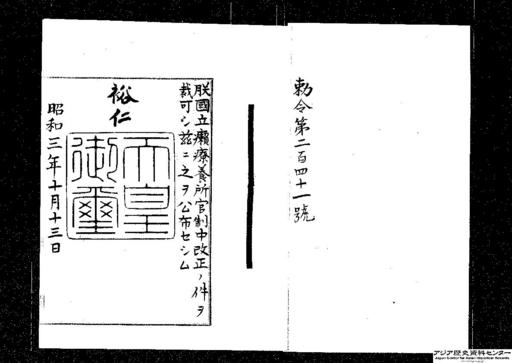 勅令第二百四十一號
朕國立癩療養所官制中改正ノ件ヲ
裁可シ茲ニ之ヲ公布セシム
裕仁
天皇
御璽
昭和三年十月十三日
アジア歴史資料センター
Japan Center for Asian Historical Records